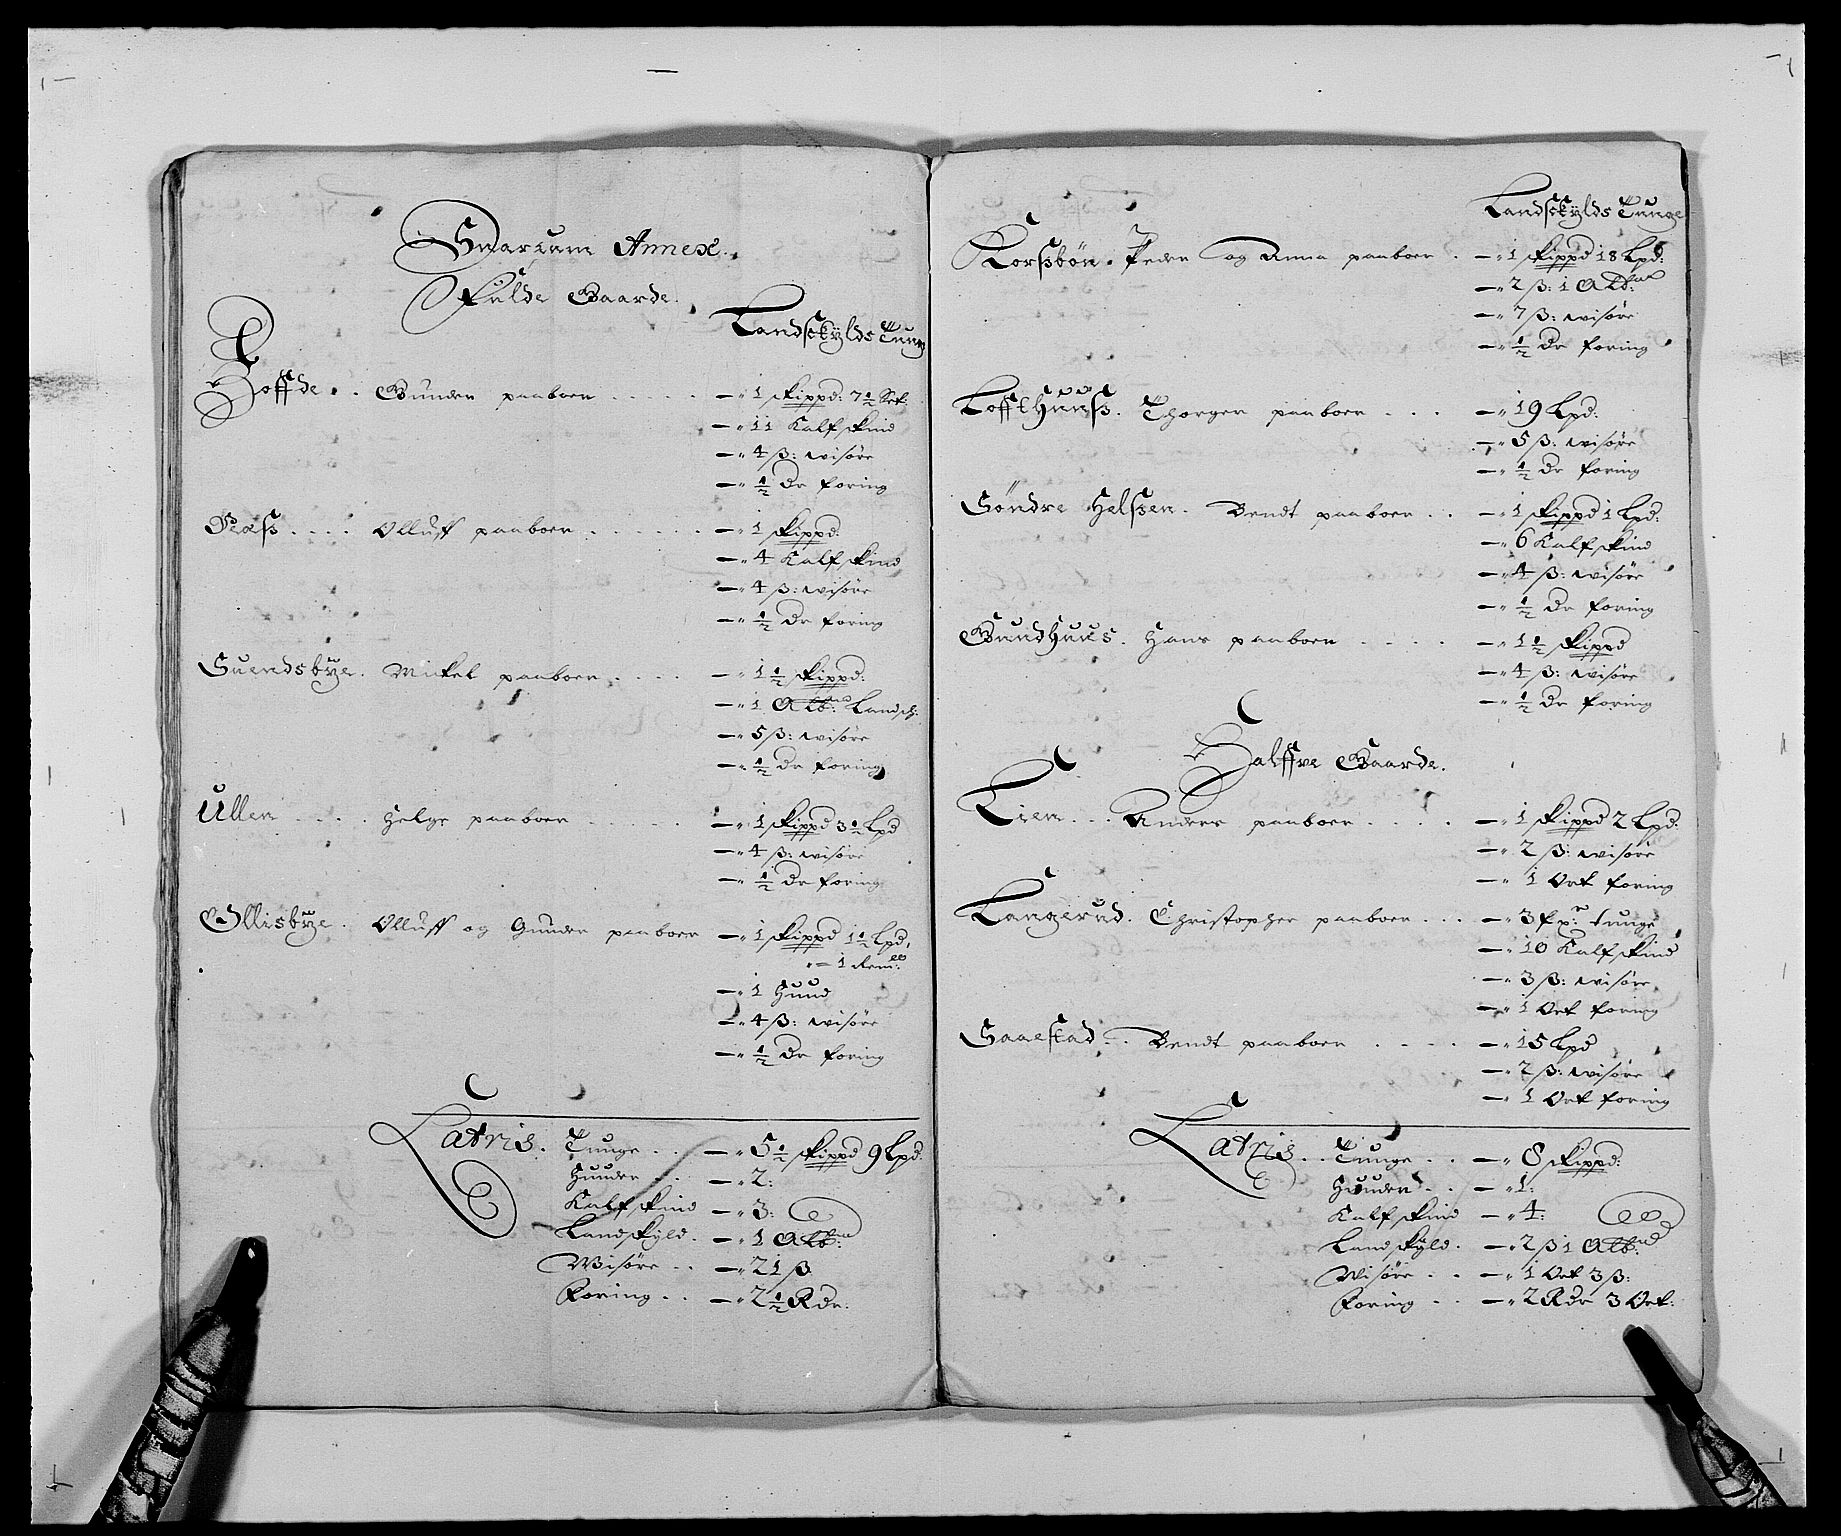 Snarum Annex.
Fulde Gaarde.
Landsckylds Tunge
Hoffde . . Gunder paaboer . . . . . 1 skippd: 7½ Set:
11 Kalfskind
4 ß: wisøre
½ Dr foring
. . . . Olluff paaboer . . . . . . 1 skippd:
4 Kalfskind
4 ß: wisøre
½ Dr foring
Suendsbÿe. Mickel paaboer . . . . 1½ skippd:
1 Alb: Landsch:
5 ß: wisøre
½ dr foring
Ullern . . . . Helge paaboer . . . . . 1 skippd 3½ Lpd
4 ß: wisøre
½ Dr foring
Ollisbÿe. Olluff og Gunder paaboer 1 skippd 1½ Lpd,
1 Rem:
1 Huud
4 ß: wisøre
½ Dr foring
Latris. Tunge . . 5½ skippd 9 Lpd:
Huuder . . 2:
Kalfskind 3:
Landskyld. 1 Alb:
Wisøre . . 21 ß
Foring . . 2½ Rdr:
Landsckylds Tunge
Korsbøn. Peder og Anna paaboer . 1 skippd 18 Lpd:
2 ß: 1 Alb:
7 ß: wisøre
½ Dr foring
LofftHuuß. Thorger paaboer . . . 19 Lpd:
5 ß: wisøre
½ Dr foring
Søndre Helssen. Bendt paaboer . . 1 skippd 1 Lpd:
6 Kalfskind
4 ß: wisøre
½ Dr foring
GrundHuus. Hans paaboer . . . . 1½ skippd
4 ß: wisøre
½ Dr foring
Halffve Gaarde.
Lien . . . Anders paaboer . . . . 1 skippd 2 Lpd:
2 ß: wisøre
1 Ort foring
Langerud. Christopher paaboer . . . 3 fr: tunge
10 Kalfskind
3 ß: wisøre
1 Ort foring
Saaestad . . Bendt paaboer . . . . 15 Lpd
2 ß: wisøre
1 Ort foring
Latris. . Tunge . . 8 skippd:
Huuder . . 1:
Kalfskind 4:
Landskÿld. 2 ß 1 Alb:
Wisøre . . 1 Ort 3 ß:
Foring . . 2 Rdr 3 Ort: